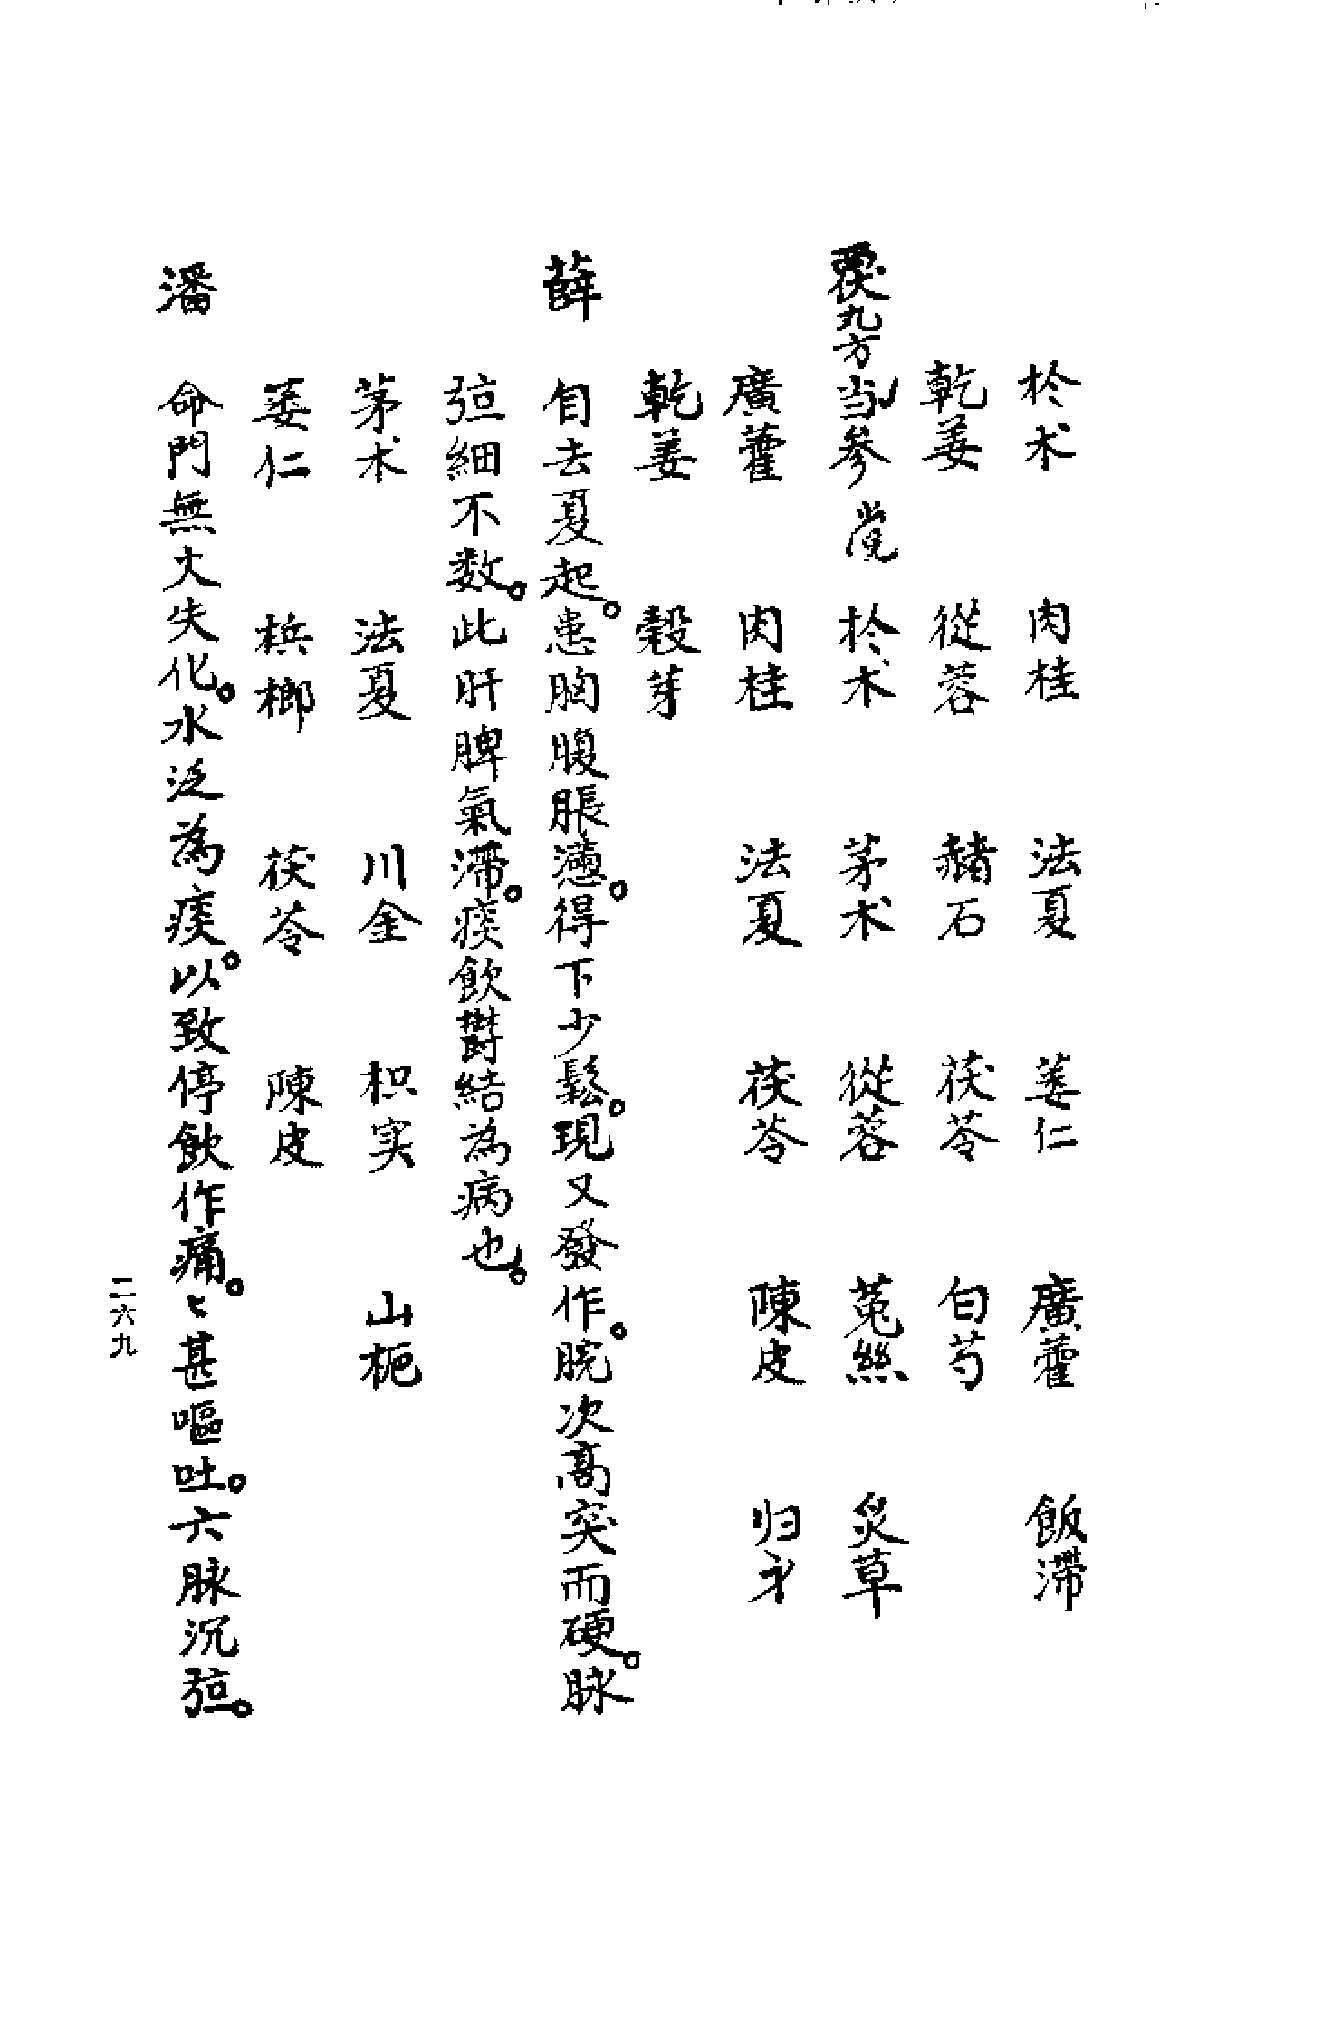 於术 肉桂 法夏 蒌仁 廣藿 飯滞
乾姜 從蓉 赭石 茯苓 白芍
覆丸方 当參 党 於术 茅术 從蓉 菟絲 炙草
廣藿 肉桂 法夏 茯苓 陳皮 归身
乾姜 穀芽
薛 自去夏起。患胸腹脹懣。得下少鬆。現又發作。脘次高突而硬。脉
弦細不数。此肝脾氣滞。痰飲鬱結為病也。
茅术 法夏 川金 枳实 山栀
蒌仁 梹榔 茯苓 陳皮
潘 命門無火失化。水泛為痰。以致停飲作痛。〻甚嘔吐。六脉沉弦。
二六九